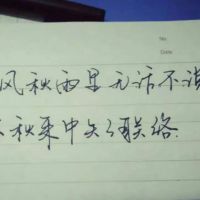 No.
Date
风秋雨里无话不谈
秋来中失了联络